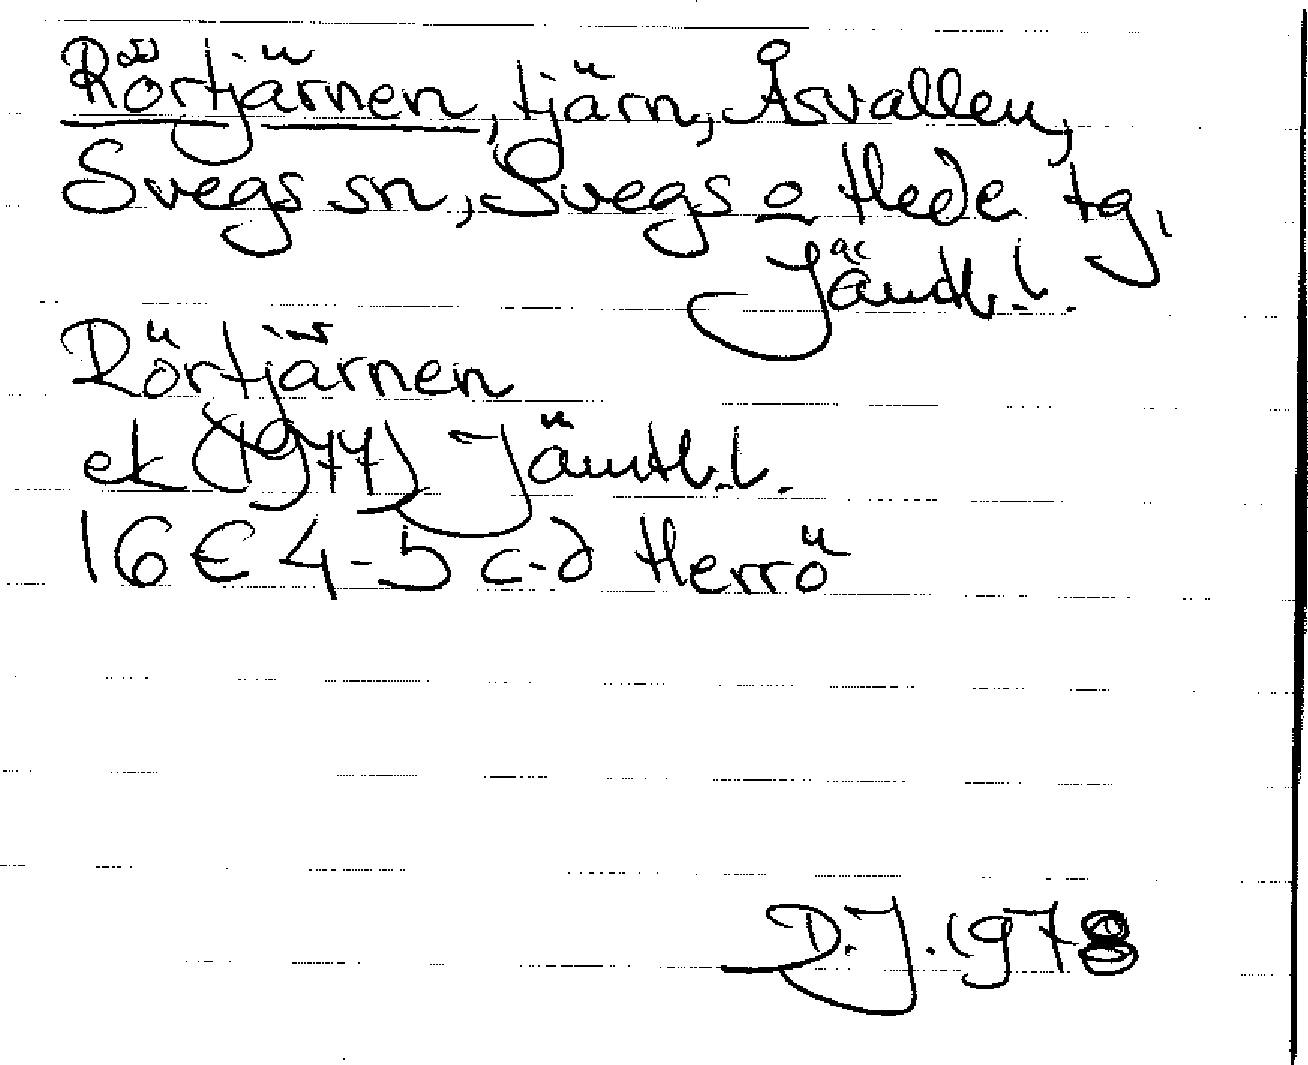 Rörtjärnen, tjärn, Åsvallen,
Svegs sn, Svegs o Hede tg,
Jämtl. l.
Rörtjärnen
ek (1977) Jämtl. l.
16 E 4-5 c-d Herrö
D.J. 1978